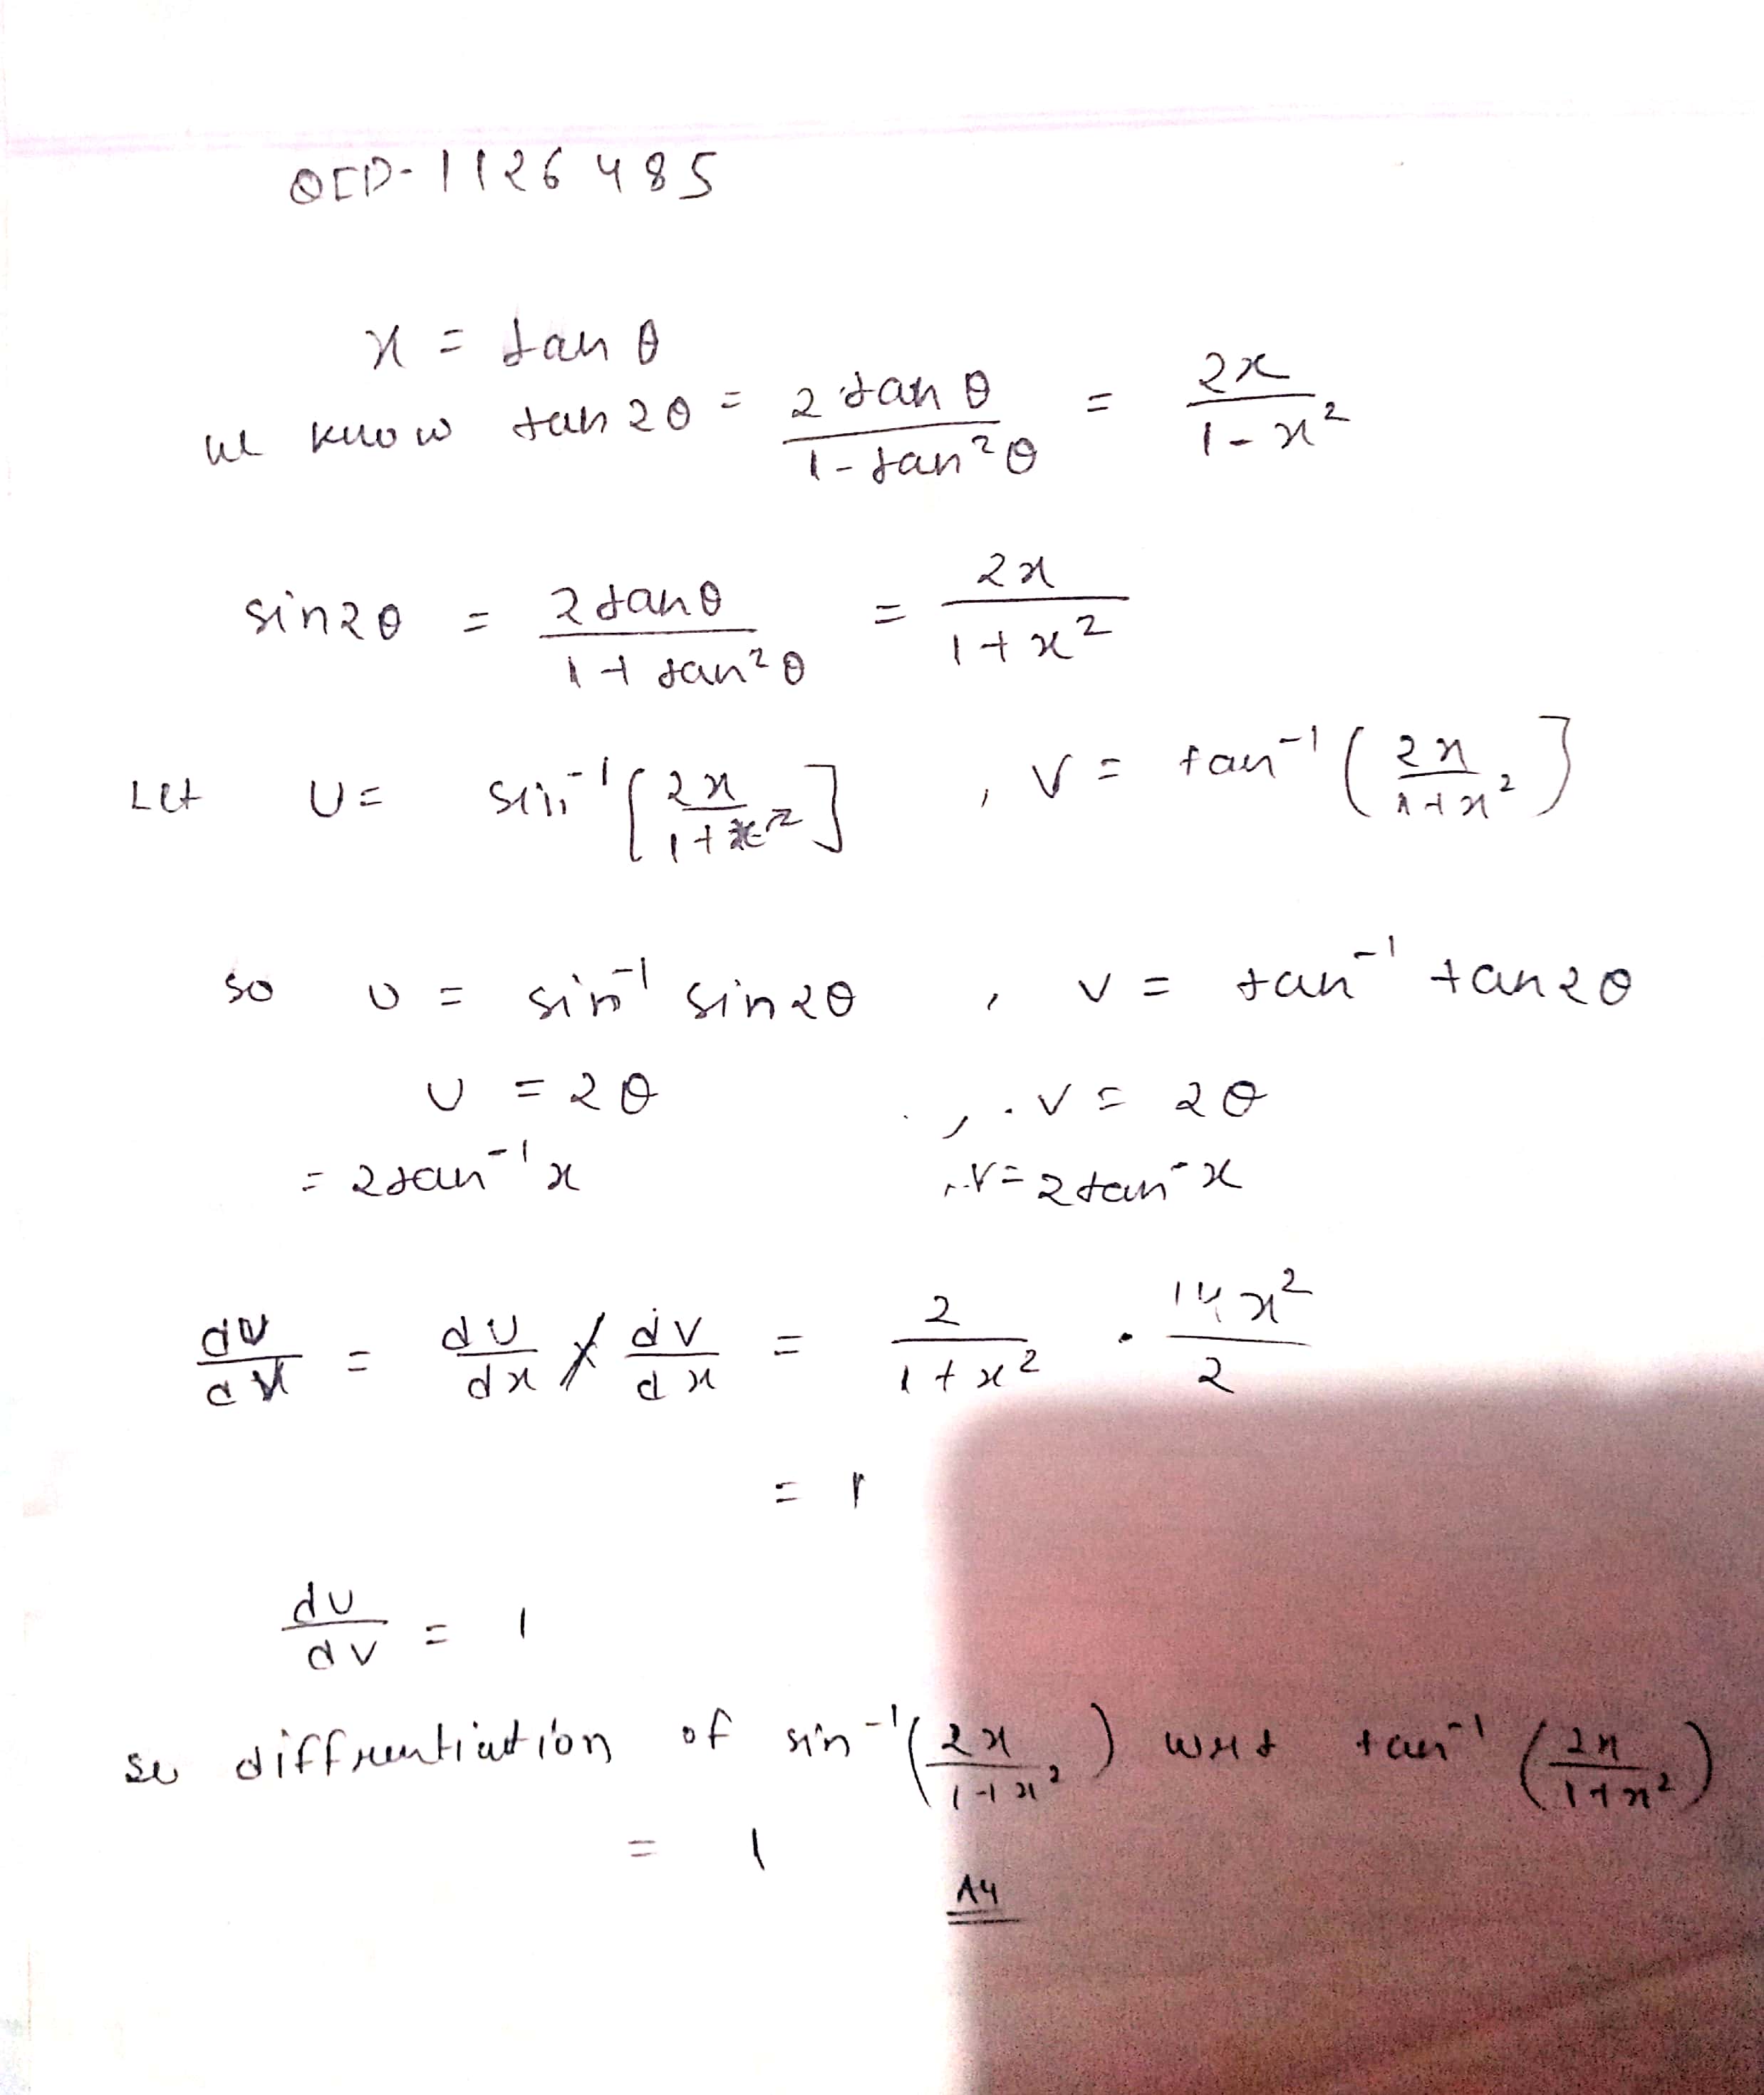 QID-1126485
x = tan θ
we know tan 2θ = 2 tan θ / 1 - tan²θ = 2x / 1 - x²
sin2θ = 2 tanθ / 1 + tan²θ = 2x / 1 + x²
Let U = sin⁻¹[2x / 1+x²] , V = tan⁻¹(2x / 1+x²]
so U = sin⁻¹ sin2θ , V = tan⁻¹ tan2θ
U = 2θ , V = 2θ
= 2tan⁻¹ x V = 2tan⁻ x
dU/dV = dU/dx / dV/dx = 2 / 1+x² · 1+x² / 2
= 1
dU/dV = 1
so diffrentiation of sin⁻¹(2x / 1+x²) wrt tan⁻¹(2x / 1+x²)
= 1